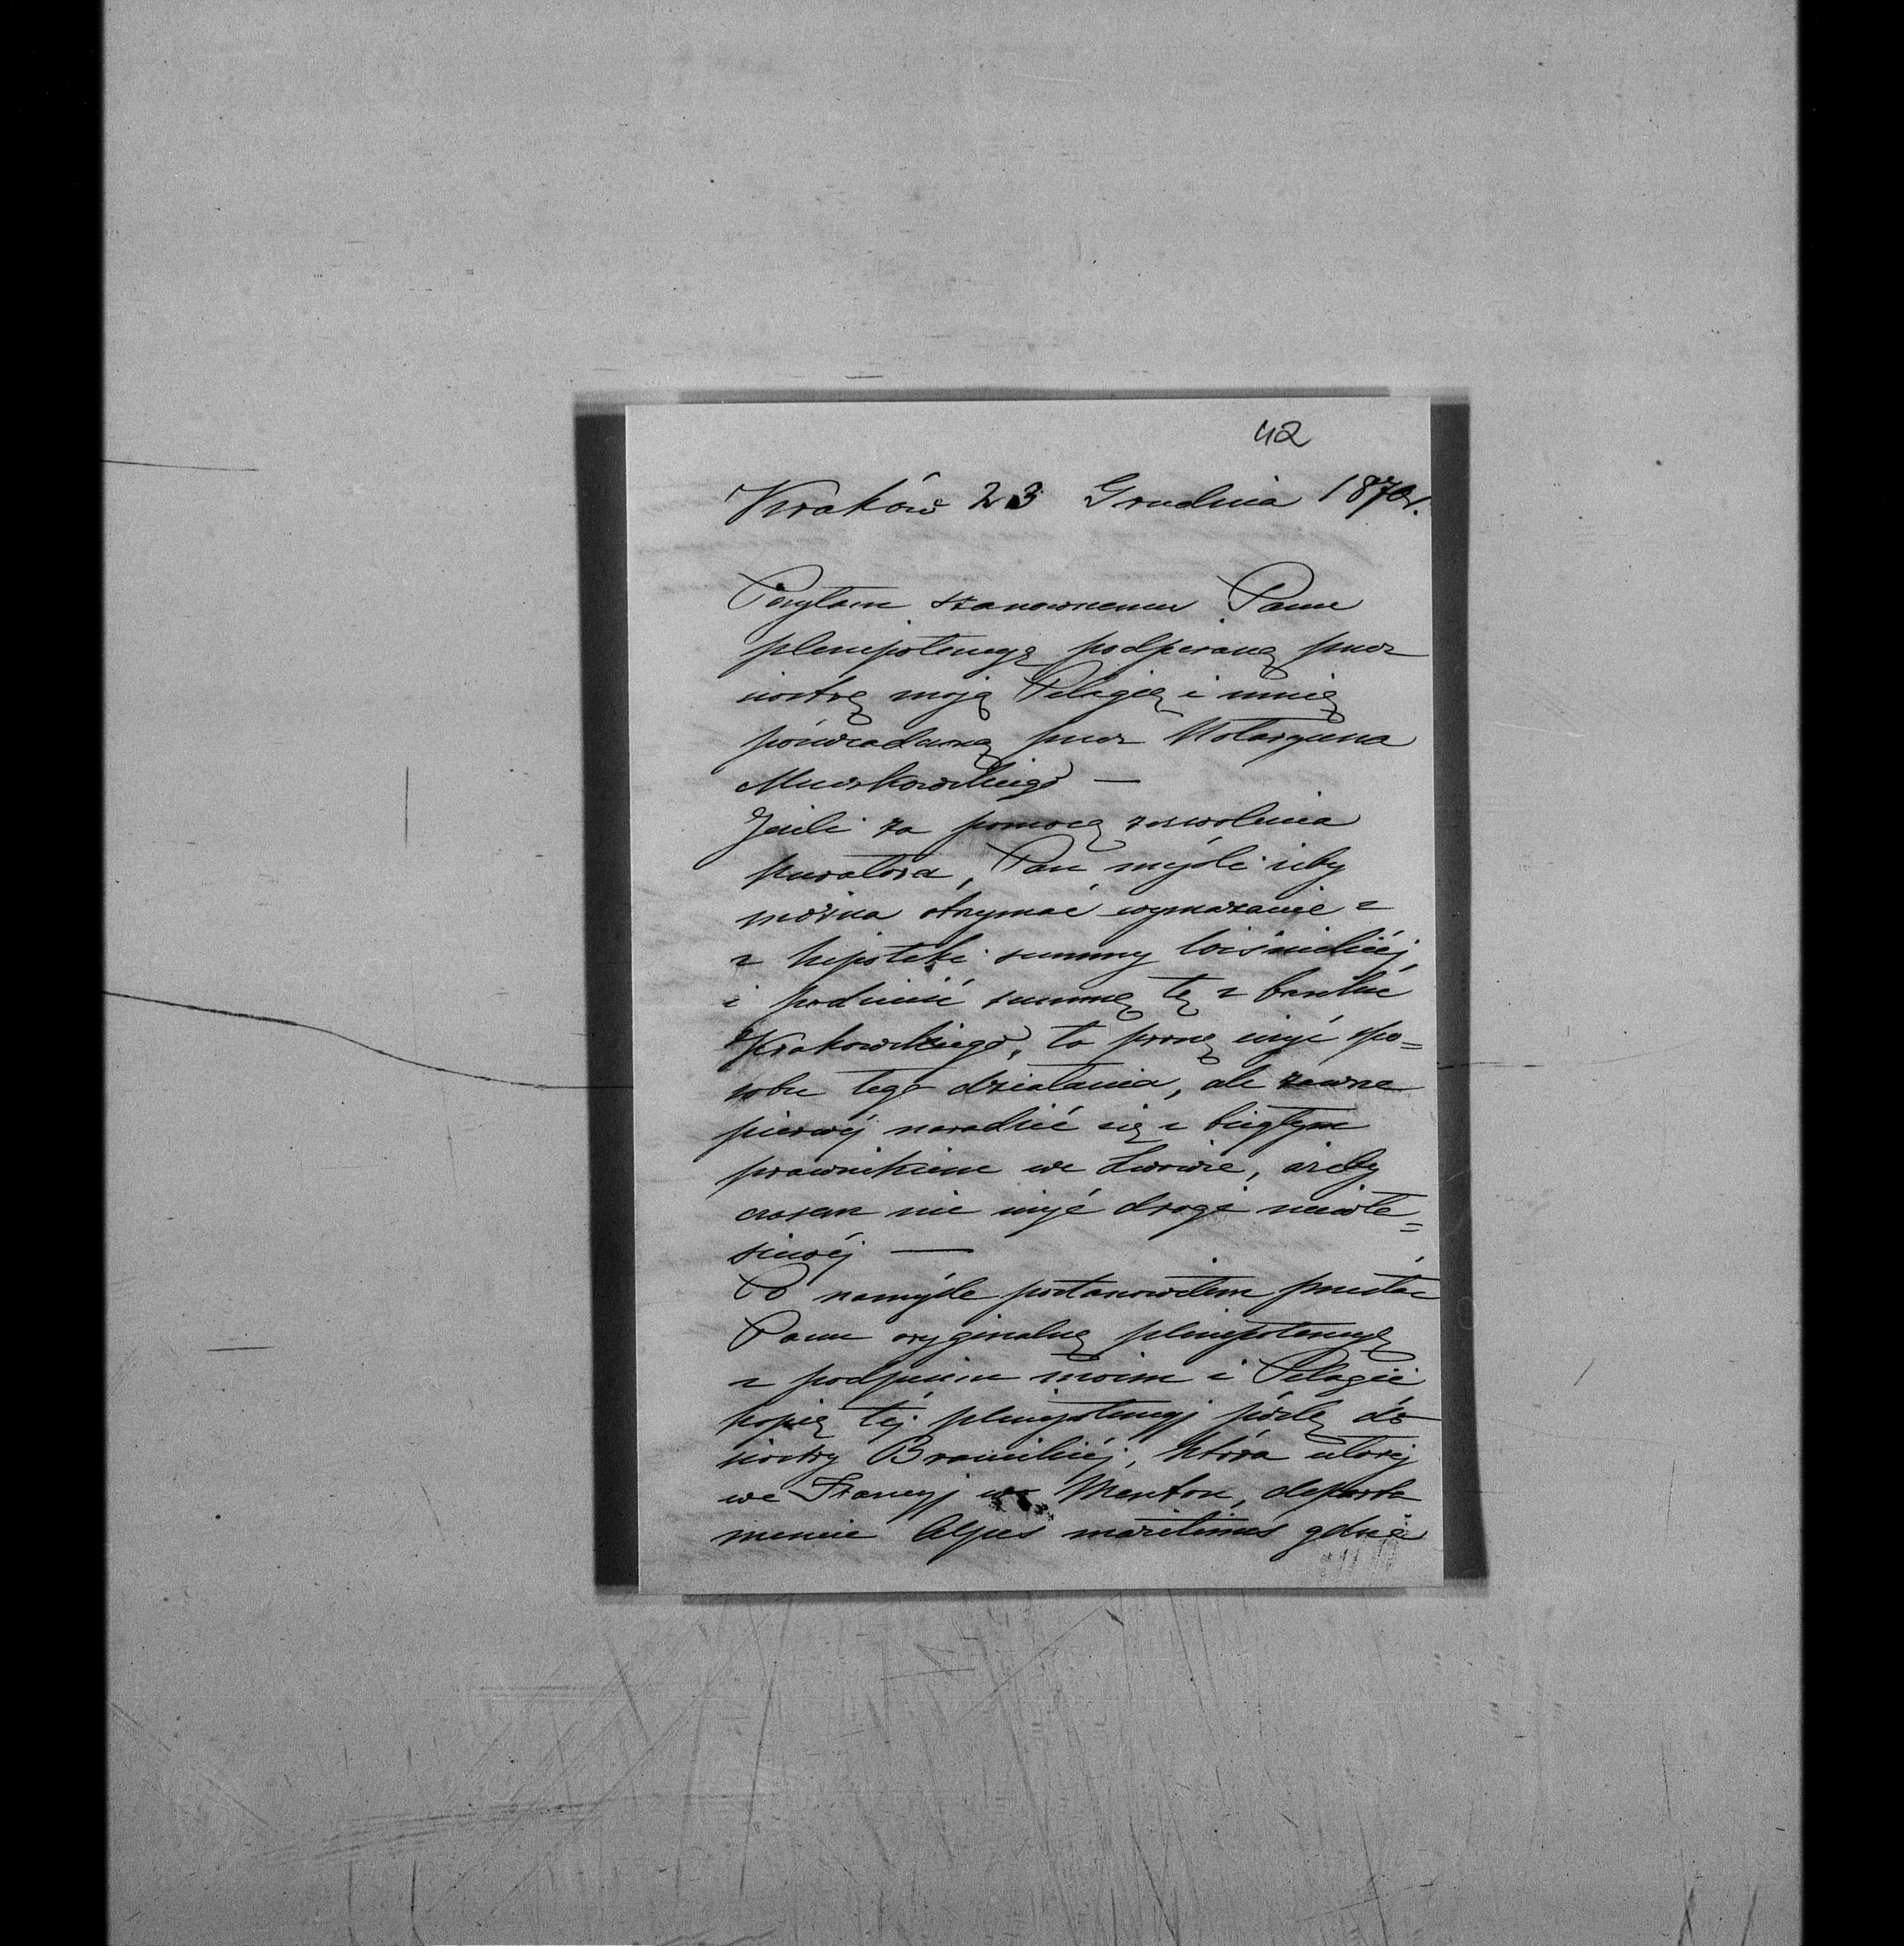 42
Kraków 23 Grudnia 1870r.
Posyłam szanownemu Panu
plenipotencyą podpisaną przez
siostrę moją Pelagię i mnię
poświadczoną przez Notaryusza
Muczkowskiego —
Jeżeli za pomocą zezwolenia
kuratora, Pan myśli żeby
można otrzymać wymazanie z
z hipoteki summy Wiśnickiéj
i podnieść summę tę z banku
Krakowskiego, to proszę użyć spo=
sobu tego działania, ale zawsze
pierwéj naradzić się z biegłym
prawnikiem we Lwowie, ażeby
czasem nie użyć drogi niewła=
ściwéj —
Po namyśle postanowiłem przesłać
Panu oryginalną plenipotencyę
z podpisem moim i Pelagii
kopię téj plenipotencyj posłę do
siostry Branickiéj, która
we Francyj w Menton, departa
mencie Alpes maritimes gdzie